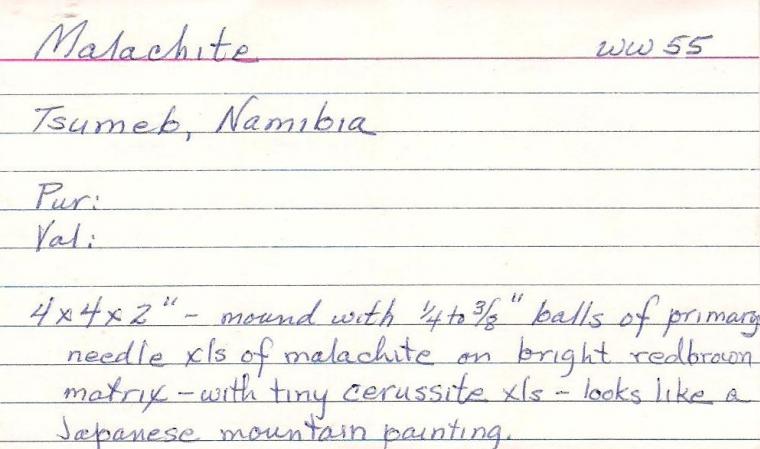 Malachite WW 55
Tsumeb, Namibia
Pur:
Val:
4 x 4 x 2" - mound with 1/4 to 3/8" balls of primary
needle xls of malachite on bright redbrown
matrix - with tiny cerussite xls - looks like a
Japanese mountain painting.